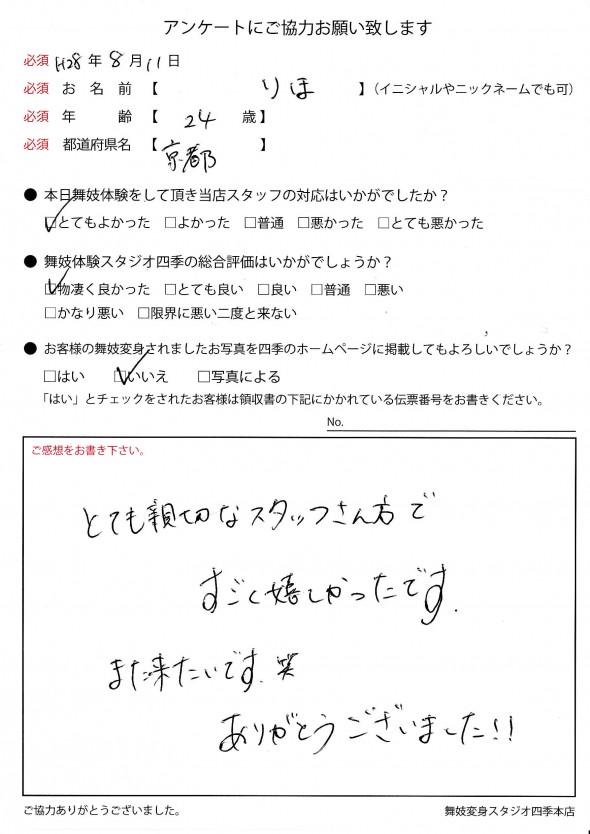 アンケートにご協力お願い致します
必須 H28年8月11日
必須 お名前【 りほ 】（イニシャルやニックネームでも可）
必須 年齢【 24 歳】
必須 都道府県名【 京都 】
● 本日舞妓体験をして頂き当店スタッフの対応はいかがでしたか？
☑とてもよかった □よかった □普通 □悪かった □とても悪かった
● 舞妓体験スタジオ四季の総合評価はいかがでしょうか？
☑物凄く良かった □とても良い □良い □普通 □悪い
□かなり悪い □限界に悪い二度と来ない
● お客様の舞妓変身されましたお写真を四季のホームページに掲載してもよろしいでしょうか？
□はい ☑いいえ □写真による
「はい」とチェックをされたお客様は領収書の下記にかかれている伝票番号をお書きください。
No.
ご感想をお書き下さい。
とても親切なスタッフさん方で
すごく嬉しかったです.
また来たいです.笑
ありがとうございました!!
ご協力ありがとうございました。 舞妓変身スタジオ四季本店